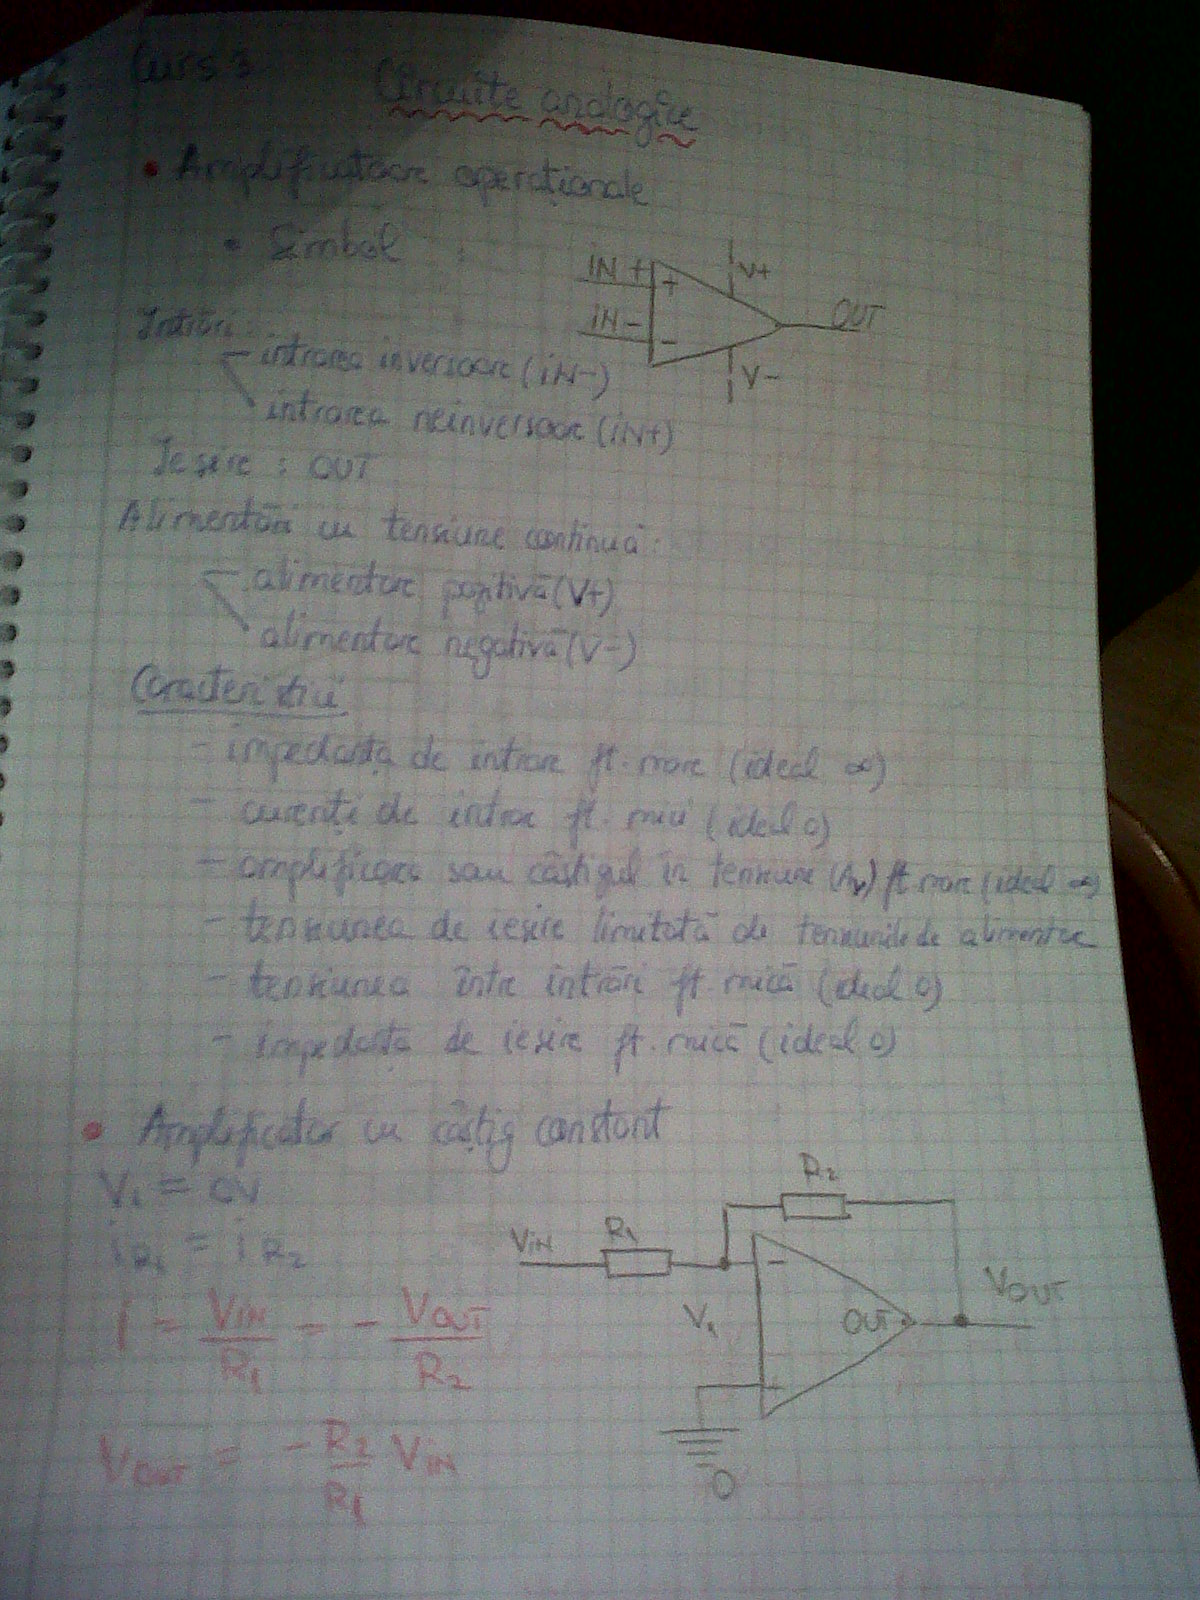 Curs 3
Circuite analogice
• Amplificatoare operaționale
• Simbol :
IN + + V+
IN - - OUT
V-
Intrări:
intrarea inversoare (IN-)
intrarea neinversoare (IN+)
Ieșire : OUT
Alimentări cu tensiune continuă:
alimentare pozitivă (V+)
alimentare negativă (V-)
Caracteristici
- impedanța de intrare ft. mare (ideal ∞)
- curenți de intrare ft. mici (ideal 0)
- amplificare sau câștigul în tensiune (Av) ft. mare (ideal ∞)
- tensiunea de ieșire limitată de tensiunile de alimentare
- tensiunea între intrări ft. mică (ideal 0)
- impedanță de ieșire ft. mică (ideal 0)
• Amplificator cu câștig constant
V1 = 0V
iR1 = iR2
I = VIN/R1 = - VOUT/R2
VOUT = - R2/R1 VIN
R2
VIN R1
-
V1 OUT VOUT
+
0